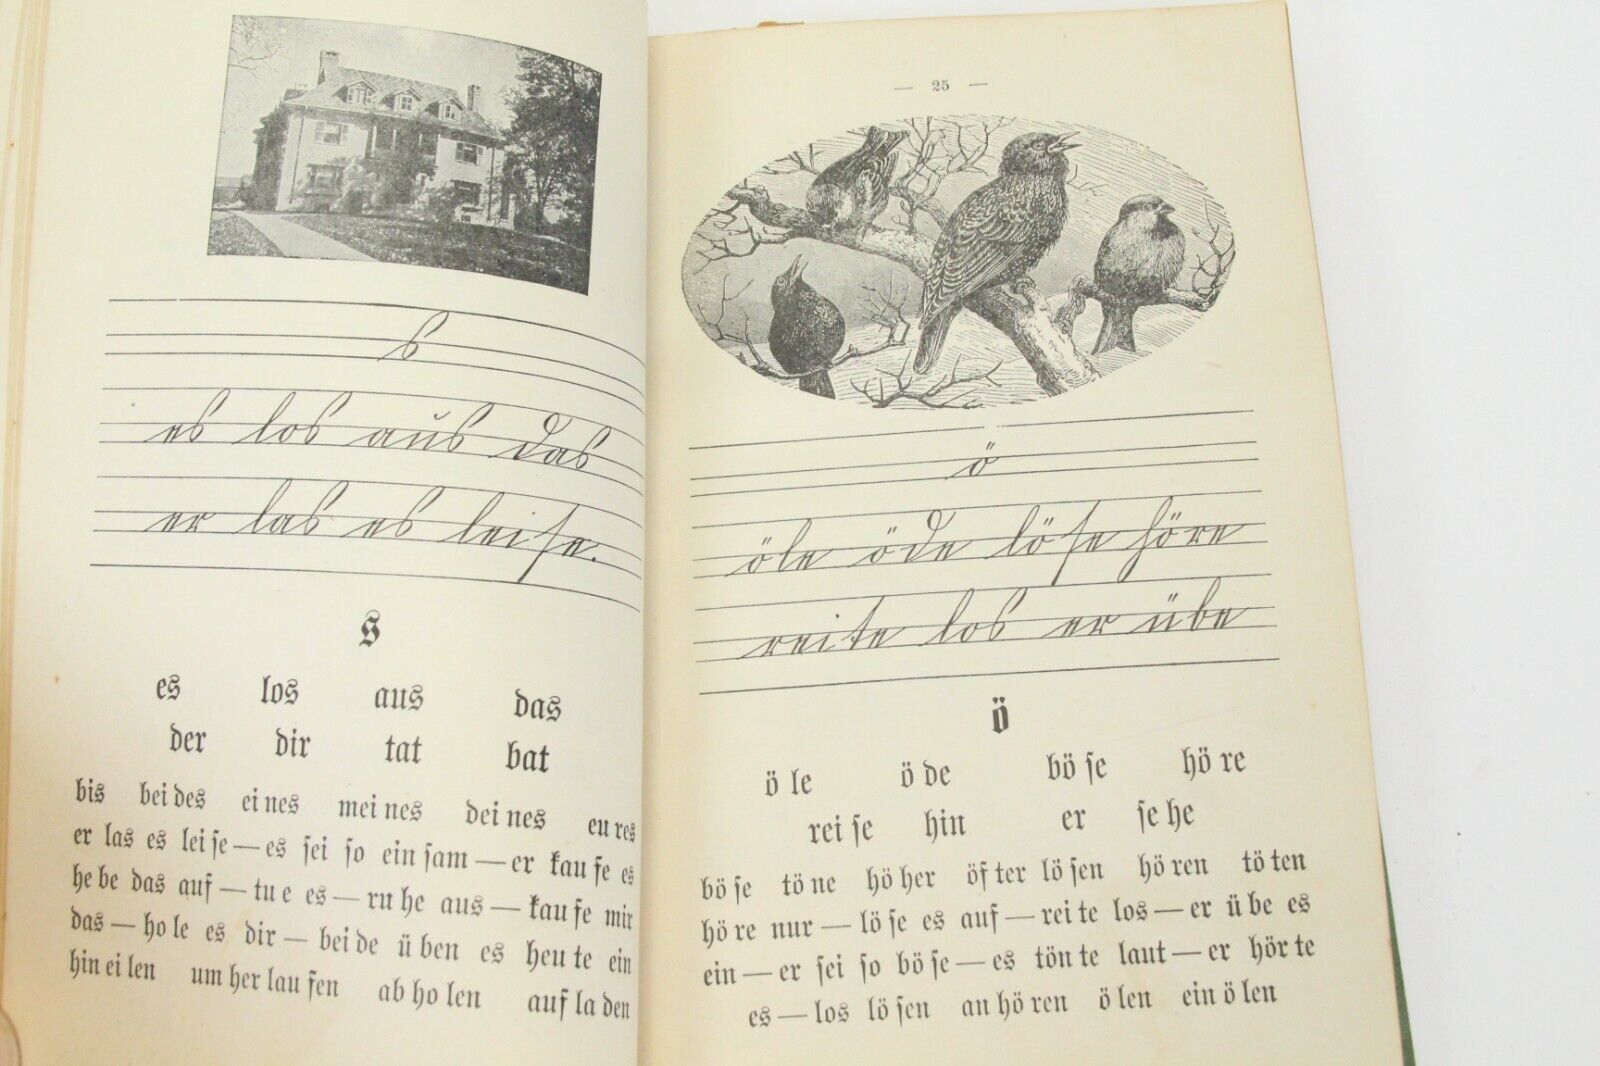 s
es los aus das
er las es leise.
s
es los aus das
der dir tat bat
bis bei des ei nes mei nes dei nes eu res
er las es lei ſe — es ſei ſo ein ſam — er kau fe es
he be das auf — tu e es — ru he aus — kau fe mir
das — ho le es dir — bei de ü ben es heu te ein
hin ei len um her lau fen ab ho len auf la den
— 25 —
ö
öle öde löſe höre
reite los er übe
ö
ö le ö de bö ſe hö re
rei ſe hin er ſe he
bö ſe tö ne hö her öf ter lö ſen hö ren tö ten
hö re nur — lö ſe es auf — rei te los — er ü be es
ein — er ſei ſo bö ſe — es tön te laut — er hör te
es — los lö ſen an hö ren ö len ein ö len